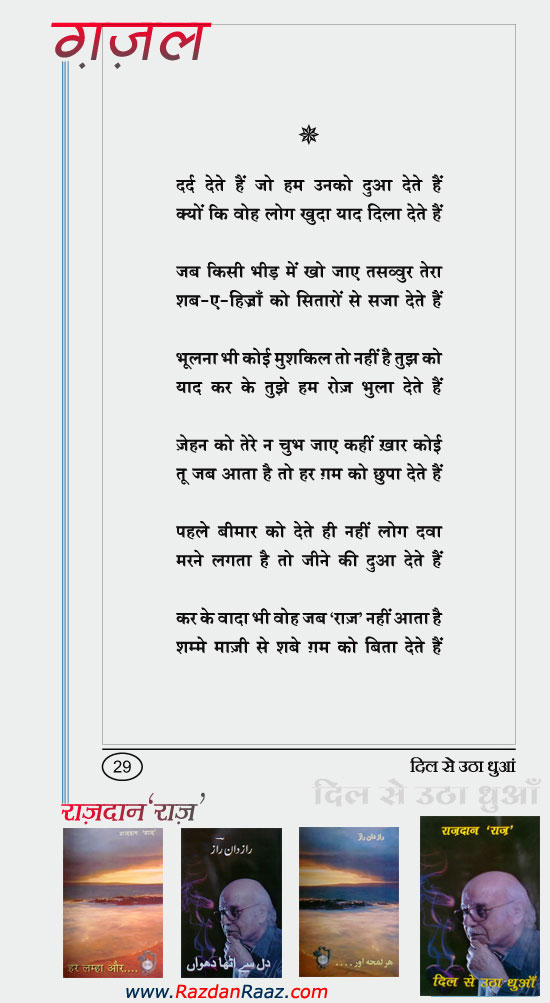 ग़ज़ल
दर्द देते हैं जो हम उनको दुआ देते हैं
क्यों कि वोह लोग खुदा याद दिला देते हैं
जब किसी भीड़ में खो जाए तसव्वुर तेरा
शब-ए-हिज्राँ को सितारों से सजा देते हैं
भूलना भी कोई मुशकिल तो नहीं है तुझ को
याद कर के तुझे हम रोज़ भुला देते हैं
ज़ेहन को तेरे न चुभ जाए कहीं ख़ार कोई
तू जब आता है तो हर ग़म को छुपा देते हैं
पहले बीमार को देते ही नहीं लोग दवा
मरने लगता है तो जीने की दुआ देते हैं
कर के वादा भी वोह जब ‘राज़’ नहीं आता है
शम्मे माज़ी से शबे ग़म को बिता देते हैं
29
दिल से उठा धुआं
दिल से उठा धुआँ
राज़दान ‘राज़’
राज़दान ‘राज़’
हर लम्हा और....
رازدان رازؔ
دل سے اٹھا دھواں
رازدان راز
ہر لمحہ اور....
राज़दान ‘राज़’
दिल से उठा धुआँ
www.RazdanRaaz.com